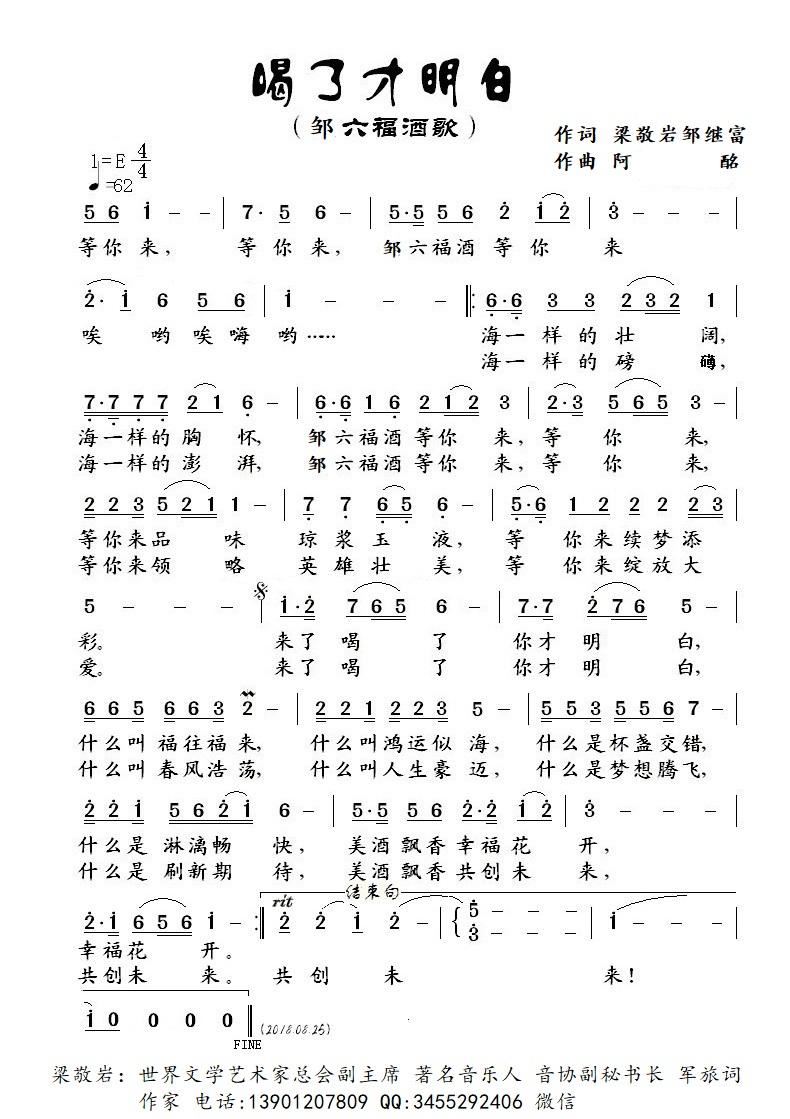 喝了才明白
（邹六福酒歌）
作词 梁敬岩邹继富
作曲 阿 酩
1=E 4/4
♩=62
5 6 i - - | 7· 5 6 - | 5·5 5 6 2 i 2 | 3 - - |
等你 来， 等 你 来， 邹六福酒 等 你 来
2· i 6 5 6 | i - - - ‖: 6·6 3 3 2 3 2 1 |
唉 哟 唉 嗨 哟…… 海一 样 的 壮 阔，
海一 样 的 磅 礴，
7·7 7 7 2 1 6 - | 6·6 1 6 2 1 2 3 | 2·3 5 6 5 5 - |
海一样的 胸 怀， 邹六福酒 等你 来， 等 你 来，
海一样的 澎 湃， 邹六福酒 等你 来， 等 你 来，
2 2 3 5 2 1 1 - | 7 7 6 5 - | 5·6 1 2 2 2 3 |
等你来品 味 琼 浆 玉 液， 等 你 来续梦添
等你来领 略 英 雄 壮 美， 等 你 来绽放大
5 - - - | i·2 7 6 5 6 - | 7·7 2 7 6 5 - |
彩。 来了 喝 了 你才 明 白，
爱。 来了 喝 了 你才 明 白，
6 6 5 6 6 3 2 - | 2 2 1 2 2 3 5 - | 5 5 3 5 5 6 7 - |
什么叫 福往福 来， 什么叫鸿运似 海， 什么是杯盏交错，
什么叫 春风浩 荡， 什么叫人生豪 迈， 什么是梦想腾飞，
2 2 i 5 6 2 i 6 - | 5·5 5 6 2·2 i 2 | 3 - - |
什么是 淋漓畅 快， 美酒飘香幸福花 开，
什么是 刷新期 待， 美酒飘香共创未 来，
结束句
2·i 6 5 6 i - :‖ rit 2 2 i 2 - | { 5 - - 3 - - | i - - |
幸福花 开。
共创未 来。 共 创 未 来！
i 0 0 0 0 ‖ (2018.08.25)
FINE
梁敬岩：世界文学艺术家总会副主席 著名音乐人 音协副秘书长 军旅词
作家 电话:13901207809 QQ:3455292406 微信